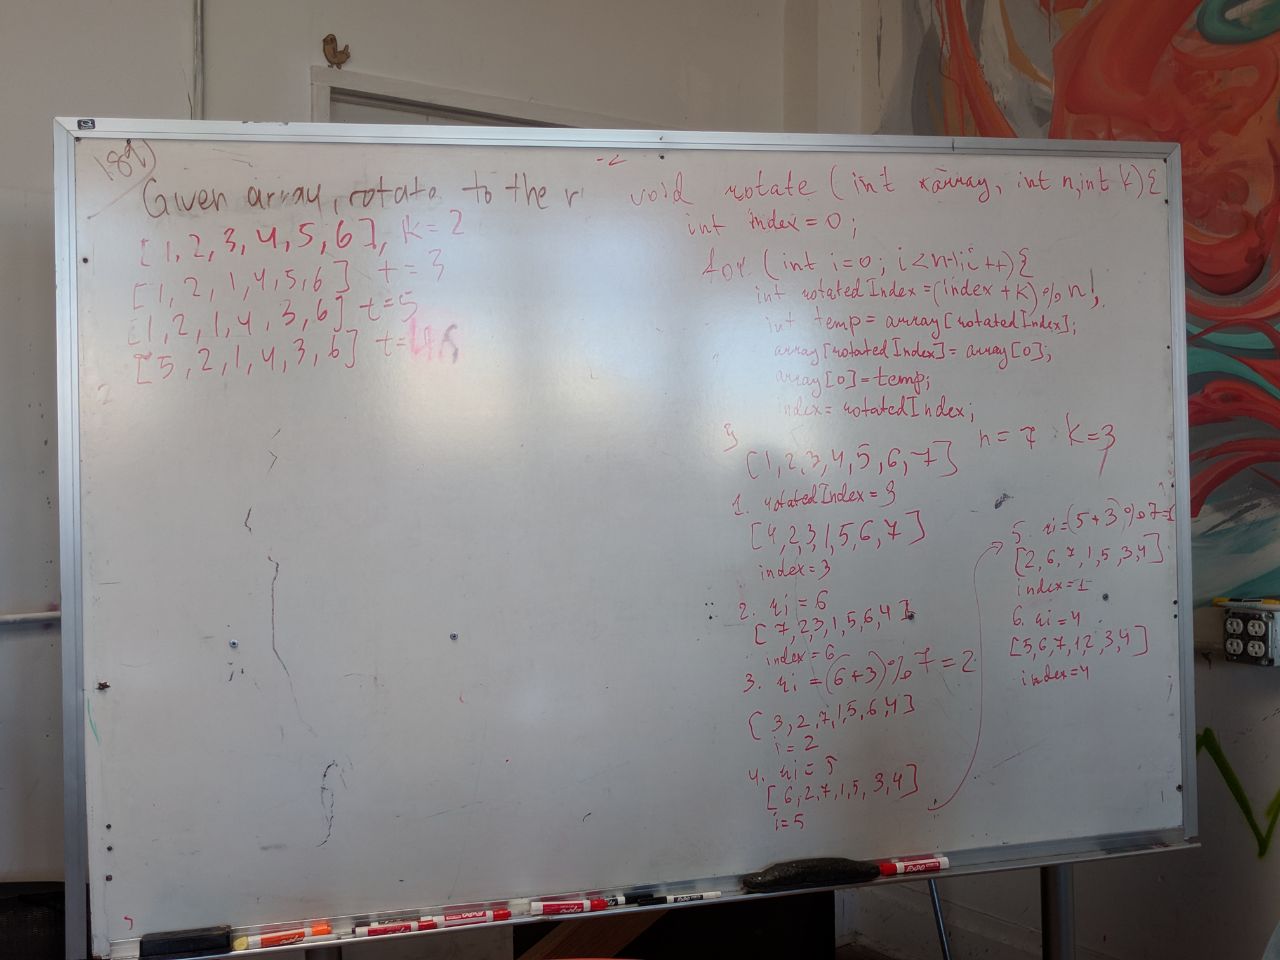 189)
Given array, rotate to the r
[1, 2, 3, 4, 5, 6], k=2
[1, 2, 1, 4, 5, 6] t=3
[1, 2, 1, 4, 3, 6] t=5
[5, 2, 1, 4, 3, 6] t=
-2
void rotate (int *array, int n, int k){
int index=0;
for (int i=0; i<n-1; i++){
int rotatedIndex=(index+k)%n;
int temp=array[rotatedIndex];
array[rotatedIndex]=array[0];
array[0]=temp;
index=rotatedIndex;
}
[1,2,3,4,5,6,7] n=7 k=3
1. rotatedIndex=3
[4,2,3,1,5,6,7]
index=3
2. ri=6
[7,2,3,1,5,6,4]
index=6
3. ri=(6+3)%7=2
[3,2,7,1,5,6,4]
i=2
4. ri=5
[6,2,7,1,5,3,4]
i=5
5. ri=(5+3)%7=1
[2,6,7,1,5,3,4]
index=1
6. ri=4
[5,6,7,1,2,3,4]
index=4
EXPO